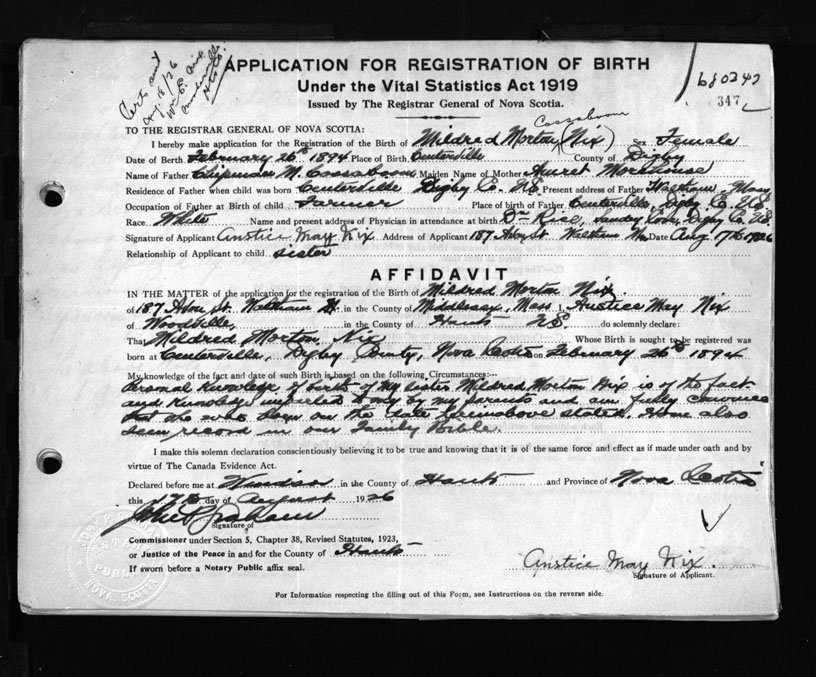 Certs and
Aug. 18/26
Wm E. Nix
APPLICATION FOR REGISTRATION OF BIRTH
680347
Under the Vital Statistics Act 1919
347
Issued by The Registrar General of Nova Scotia.
Cossaboom
TO THE REGISTRAR GENERAL OF NOVA SCOTIA:
I hereby make application for the Registration of the Birth of Mildred Morton (Nix) Sex Female
Date of Berth February 26th 1894 Place of Birth Centerville County of Digby
Name of Father Chipman M. Cossaboom Maiden Name of Mother Morehouse
Residence of Father when child was born Centerville Digby Co. NS. Present address of Father Waltham, Mass
Occupation of Father at Birth of child Farmer Place of birth of Father Centerville, Digby Co. N.S.
Race White Name and present address of Physician in attendance at birth Dr Rice, Sandy Cove, Digby Co. NS
Signature of Applicant Anstice May Nix Address of Applicant 187 St Waltham Date Aug 17th 1926
Relationship of Applicant to child sister
AFFIDAVIT
IN THE MATTER of the application for the registration of the Birth of Mildred Morton Nix
of 187 St. Waltham in the County of Middlesex, Mass I, Anstice May Nix
of Woodville, in the County of Hants NS. do solemnly declare:
That Mildred Morton Nix Whose Birth is sought to be registered was
born at Centerville, Digby County, Nova Scotia on February 26th 1894
My knowledge of the fact and date of such Birth is based on the following Circumstances:--
Personal Knowledge of birth of my sister Mildred Morton Nix is of the fact
and knowledge imparted to me by my parents and am fully convinced
that she was born on the date hereinabove stated. Have also
seen record in our Family Bible.
I make this solemn declaration conscientiously believing it to be true and knowing that it is of the same force and effect as if made under oath and by
virtue of The Canada Evidence Act.
Declared before me at Windsor in the County of Hants and Province of Nova Scotia
this 17th day of August 1926
John Graham
Signature of
Commissioner under Section 5, Chapter 38, Revised Statutes, 1923,
or Justice of the Peace in and for the County of Hants
If sworn before a Notary Public affix seal.
Anstice May Nix.
Signature of Applicant.
For Information respecting the filling out of this Form, see Instructions on the reverse side.
NOVA SCOTIA